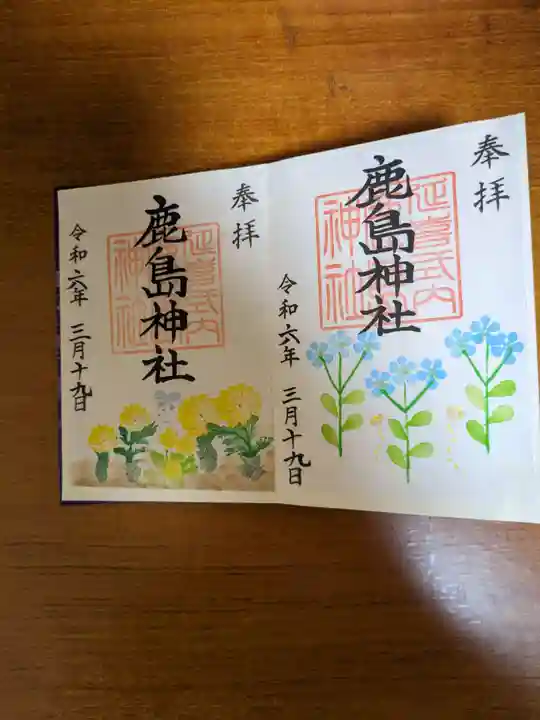 奉拝
鹿島神社
延喜式内
神社
令和六年 三月十九日
奉拝
鹿島神社
延喜式内
神社
令和六年 三月十九日